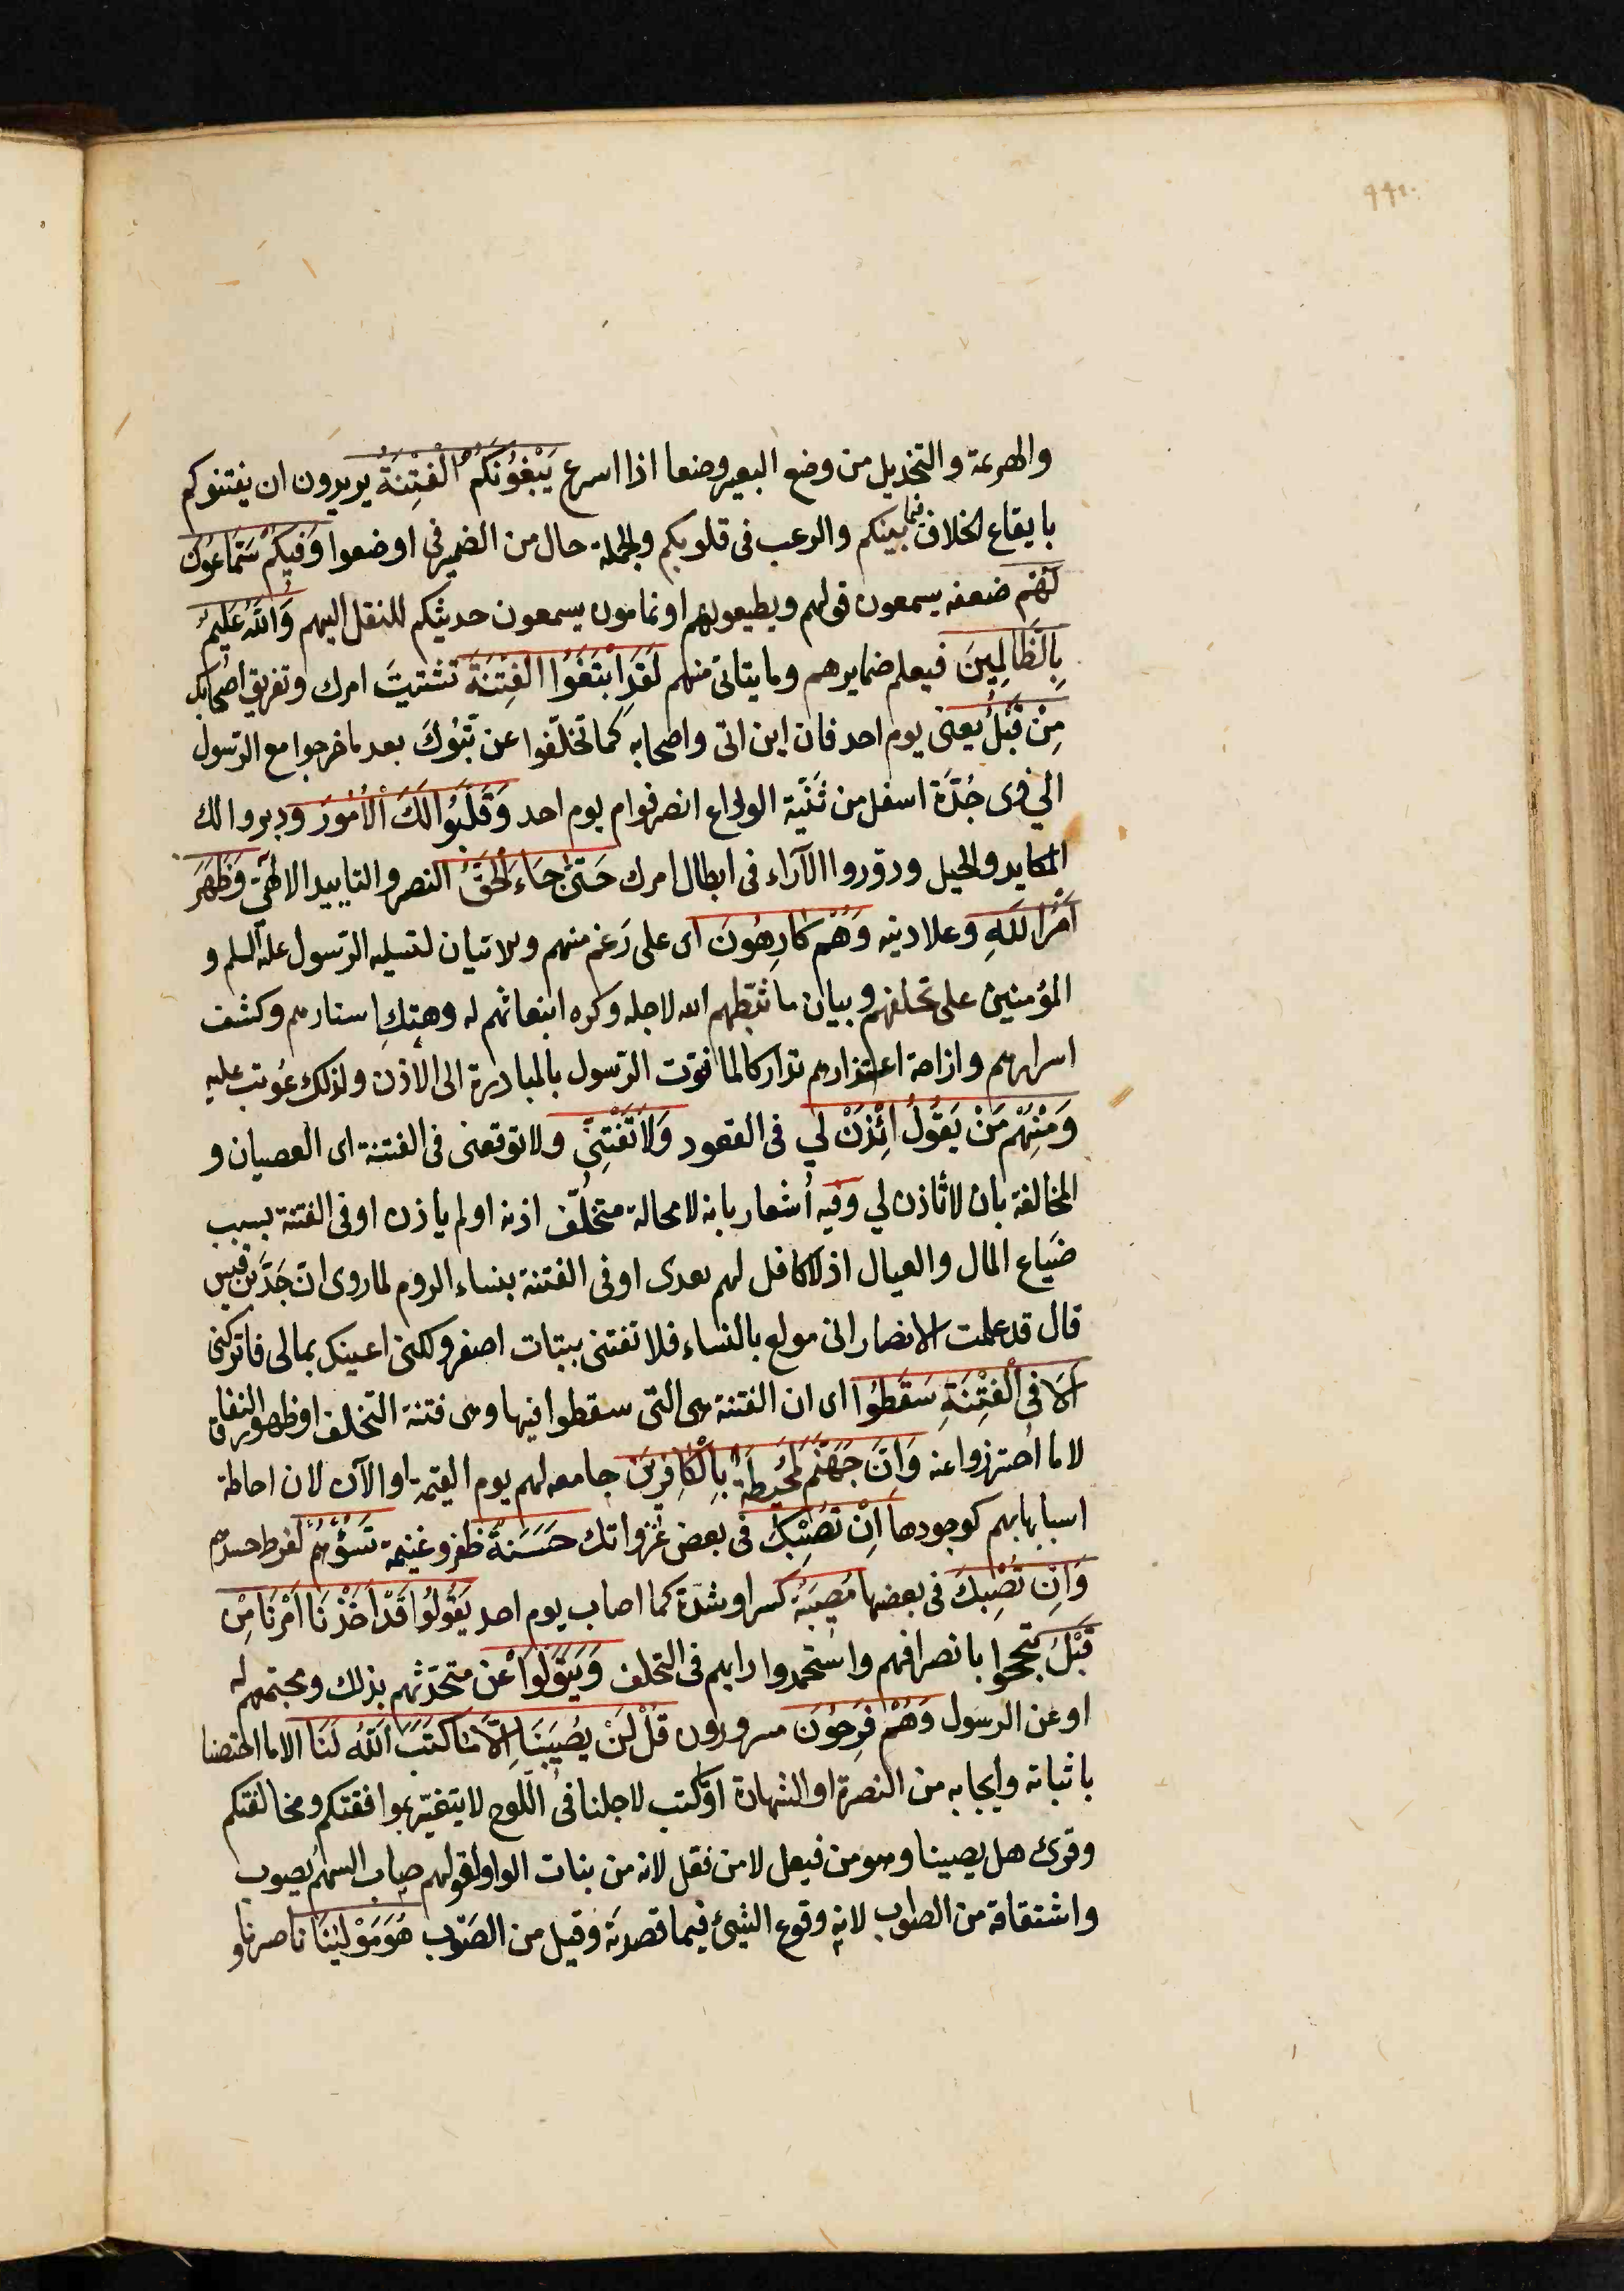 والهزيمة والتخذيل من وضع البعير وضعا اذا اسرع يَبْغُونَكُمُ الْفِتْنَةَ يريدون ان يفتنوكم
بايقاع الخلاف فيما بينكم والرعب فى قلوبكم والجملة حال من الضمير فى اوضعوا وَفِيكُمْ سَمَّاعُونَ
لَهُمْ ضعفه يسمعون قولهم ويطيعونهم او نمامون يسمعون حديثكم للنقل اليهم وَاللّٰهُ عَلِيمٌ
بِالظَّالِمِينَ فيعلم ضمايرهم وما يتاتى منهم لَقَدِ ابْتَغَوُا الْفِتْنَةَ تشتيتَ امرك وتفريق اصحابك
مِنْ قَبْلُ يعنى يوم احد فان ابن ابى واصحابه كما تخلّفوا عن تَبُوكَ بعد ما خرجوا مع الرّسول
الي ذى جُدَّة اسفل من ثَنيّة الوداع انصرفوا م يوم احد وَقَلَّبُوا لَكَ الْأُمُورَ ودبروا لك
المكايد والحيل ودوّروا الآراء فى ابطال امرك حَتّٰى جَاءَ الْحَقُّ النصر والتاييد الالهيّ وَظَهَرَ
اَمْرُ اللّٰهِ وعلا دينه وَهُمْ كَارِهُونَ اى على رَغم منهم والاتيان لتسلية الرّسول عليه السلم و
المؤمنين على تخلفهم وبيان ما ثبّطهم الله لاجله وكره انبعاثهم له وهتكِ استارهم وكشف
اسرارهم وازاحة اعتذارهم تداركا لما فوّت الرّسول بالمبادرة الى الاذن ولذلك عُوتب عليه
وَمِنْهُمْ مَنْ يَقُولُ ائْذَنْ لي فى القعود وَلَا تَفْتِنِّي ولا توقعنى فى الفتنة اى العصيان و
المخالفة بان لا تاذن لي وفيه اُشعار بانه لا محالة متخلّف اذنه او لم ياذن او فى الفتنة بسبب
ضَياع المال والعيال اذ لا كافل لهم بعدى او فى الفتنة بنساء الروم لما روى انّ جَدَّ بن قيس
قال قد علمت الانصار انى مولع بالنساء فلا تفتنى ببنات اصفر ولكنى اعينك بمالى فاتركنى
اَلَا فِى الْفِتْنَةِ سَقَطُوا اى ان الفتنة هى التى سقطوا فيها وهى فتنة التخلف او ظهور النفاق
لا ما احترزوا عنه وَاِنَّ جَهَنَّمَ لَمُحِيطَةٌ بِالْكَافِرِينَ جامعه لهم يوم القيمة او الآن لان احاطة
اسبابها بهم كوجودها اِنْ تُصِبْكَ فى بعض غزواتك حَسَنَةٌ ظفر وغنيمة تَسُؤْهُمْ لفرط حسدهم
وَاِنْ تُصِبْكَ فى بعضها مُصِيبَةٌ كسر او شدّة كما اصاب يوم احد يَقُولُوا قَدْ اَخَذْنَا اَمْرَنَا مِنْ
قَبْلُ تبجحوا بانصرافهم واستحمدوا رايهم فى التخلف وَيَتَوَلَّوْا عن متحدّثهم بذلك ومجتمعهم له
او عن الرسول وَهُمْ فَرِحُونَ مسرورون قُلْ لَنْ يُصِيبَنَا اِلَّا مَا كَتَبَ اللّٰهُ لَنَا الا ما اختصنا
باثباته وايجابه من النصرة او الشهادة او ما كتب لاجلنا فى اللّوح لا يتغيّر بموافقتكم ومخالفتكم
وقرئ هل يصيبنا وهو من فيعل لا من فعّل لانه من بنات الواو لقولهم صاب السهمُ يصوب
واشتقاقه من الصواب لانه وقوع الشيئ فيما قصد به وقيل من الصَّوب هُوَ مَوْلٰينَا ناصرنا و